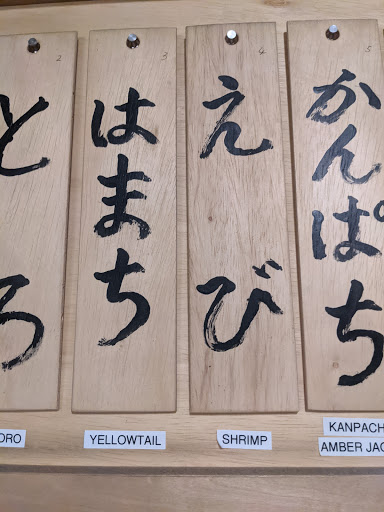 2
とろ
ORO
3
はまち
YELLOWTAIL
4
えび
SHRIMP
5
かんぱち
KANPACH
AMBER JAC